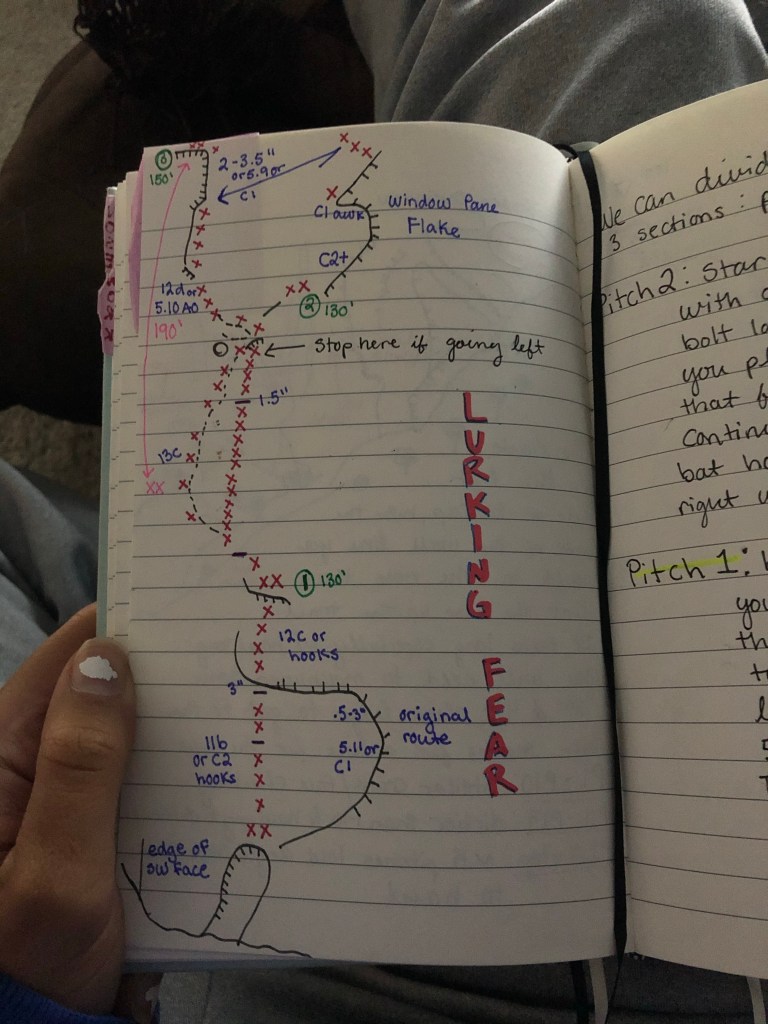 ③
150'
2-3.5"
or 5.9 or
C1
C1 awk
Window Pane
Flake
C2+
12d or
5.10 A0
② 130'
190'
Stop here if going left
1.5"
13c
① 130'
12c or
hooks
3"
.5-3"
original
route
5.11 or
C1
11b
or C2
hooks
edge of
SW face
LURKING
FEAR
We can divid
3 sections : F
Pitch 2: Star
with
bolt la
you pl
that
Contin
bat ho
right u
Pitch 1:
you
th